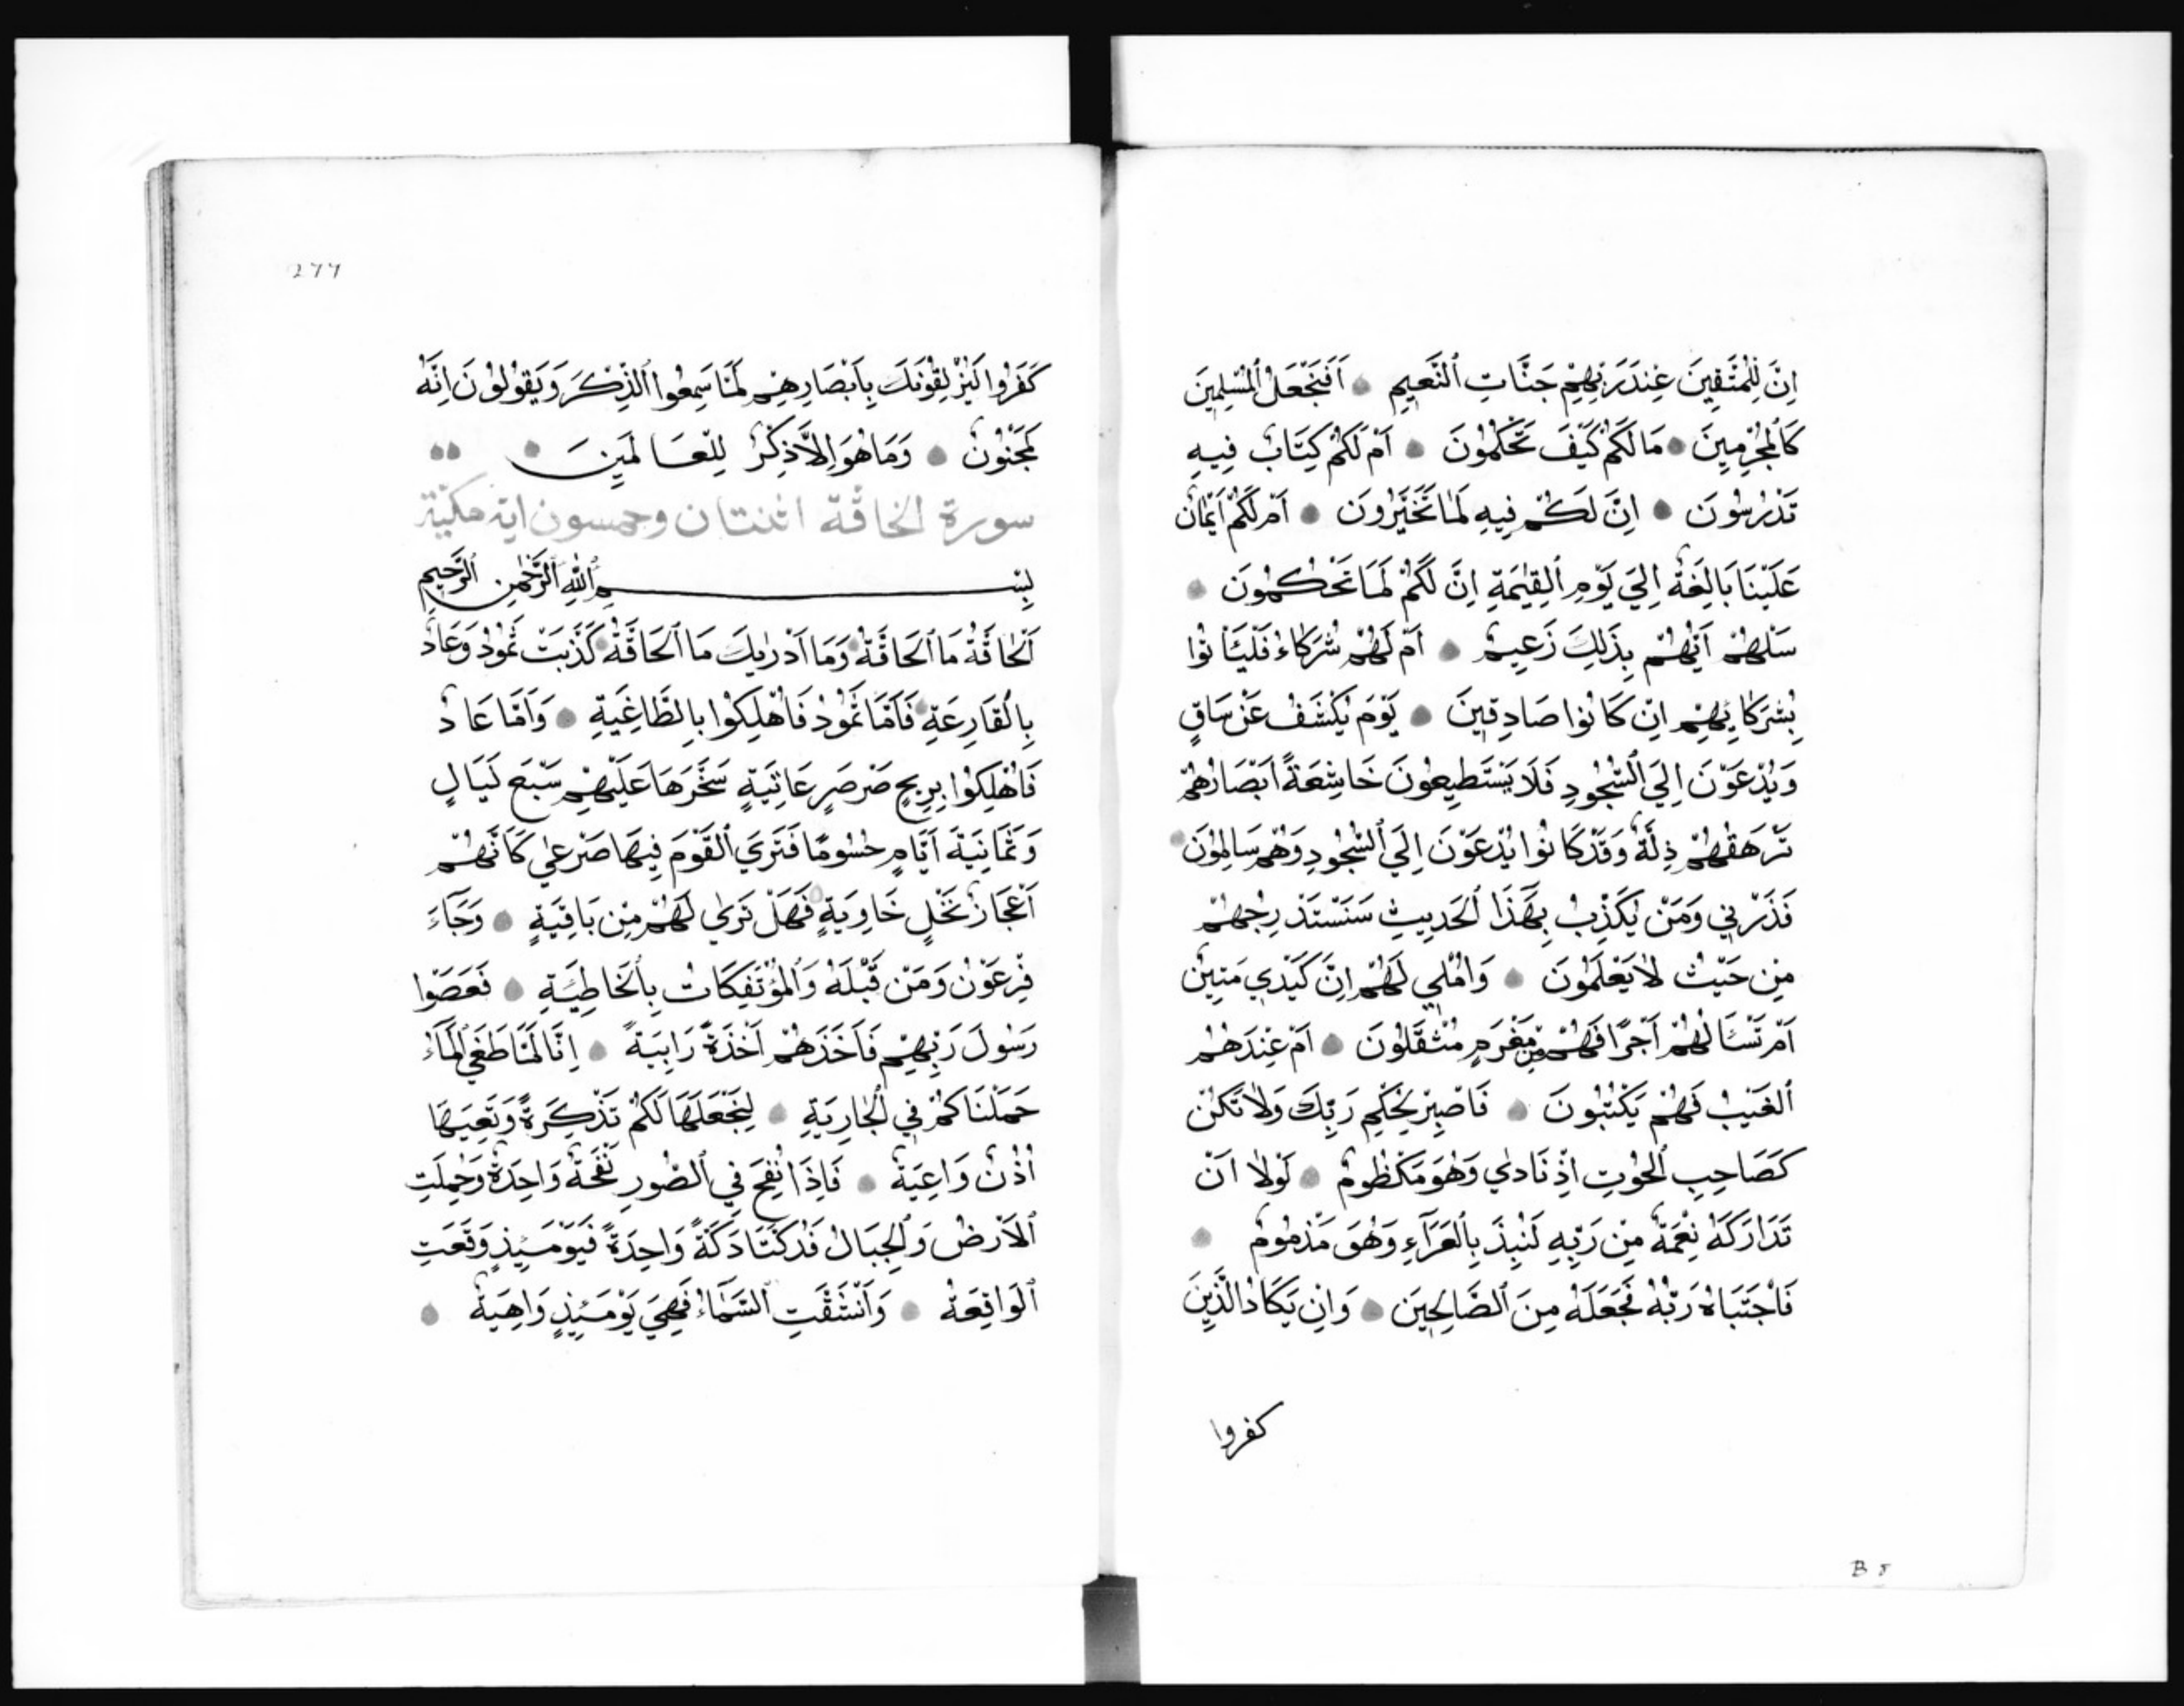 اِنَّ لِلْمُتَّقِينَ عِنْدَ رَبِّهِمْ جَنَّاتِ ٱلنَّعِيمِ ● اَفَنَجْعَلُ ٱلْمُسْلِمِينَ
كَٱلْمُجْرِمِينَ ● مَا لَكُمْ كَيْفَ تَحْكُمُونَ ● اَمْ لَكُمْ كِتَابٌ فِيهِ
تَدْرُسُونَ ● اِنَّ لَكُمْ فِيهِ لَمَا تَخَيَّرُونَ ● اَمْ لَكُمْ اَيْمَانٌ
عَلَيْنَا بَالِغَةٌ اِلَي يَوْمِ ٱلْقِيٰمَةِ اِنَّ لَكُمْ لَمَا تَحْكُمُونَ ●
سَلْهُمْ اَيُّهُمْ بِذَلِكَ زَعِيمٌ ● اَمْ لَهُمْ شُرَكَاءُ فَلْيَأْتُوا
بِشُرَكَايِهِمْ اِنْ كَانُوا صَادِقِينَ ● يَوْمَ يُكْشَفُ عَنْ سَاقٍ
وَيُدْعَوْنَ اِلَي ٱلسُّجُودِ فَلَا يَسْتَطِيعُونَ خَاشِعَةً اَبْصَارُهُمْ
تَرْهَقُهُمْ ذِلَّةٌ وَقَدْ كَانُوا يُدْعَوْنَ اِلَي ٱلسُّجُودِ وَهُمْ سَالِمُونَ ●
فَذَرْنِي وَمَنْ يُكَذِّبُ بِهَذَا ٱلْحَدِيثِ سَنَسْتَدْرِجُهُمْ
مِنْ حَيْثُ لَا يَعْلَمُونَ ● وَاُمْلِي لَهُمْ اِنَّ كَيْدِي مَتِينٌ
اَمْ تَسْـَٔالُهُمْ اَجْرًا فَهُمْ مِنْ مَغْرَمٍ مُثْقَلُونَ ● اَمْ عِنْدَهُمُ
ٱلْغَيْبُ فَهُمْ يَكْتُبُونَ ● فَاصْبِرْ لِحُكْمِ رَبِّكَ وَلَا تَكُنْ
كَصَاحِبِ ٱلْحُوتِ اِذْ نَادٰي وَهُوَ مَكْظُومٌ ● لَوْلَا اَنْ
تَدَارَكَهُ نِعْمَةٌ مِنْ رَبِّهِ لَنُبِذَ بِٱلْعَرَآءِ وَهُوَ مَذْمُومٌ ●
فَاجْتَبَاهُ رَبُّهُ فَجَعَلَهُ مِنَ ٱلصَّالِحِينَ ● وَاِنْ يَكَادُ الَّذِينَ
كفروا
B 5
277
كَفَرُوا لَيُزْلِقُونَكَ بِاَبْصَارِهِمْ لَمَّا سَمِعُوا ٱلذِّكْرَ وَيَقُولُونَ اِنَّهُ
لَمَجْنُونٌ ● وَمَا هُوَ اِلَّا ذِكْرٌ لِلْعَالَمِينَ ●
سورة الحاقّة اثنتان وخمسون اية مكيّة
بِسْمِ ٱللّٰهِ ٱلرَّحْمٰنِ ٱلرَّحِيمِ
اَلْحَاقَّةُ مَا ٱلْحَاقَّةُ ● وَمَا اَدْرٰيكَ مَا ٱلْحَاقَّةُ ● كَذَّبَتْ ثَمُودُ وَعَادٌ
بِالْقَارِعَةِ ● فَاَمَّا ثَمُودُ فَاُهْلِكُوا بِالطَّاغِيَةِ ● وَاَمَّا عَادٌ
فَاُهْلِكُوا بِرِيحٍ صَرْصَرٍ عَاتِيَةٍ سَخَّرَهَا عَلَيْهِمْ سَبْعَ لَيَالٍ
وَثَمَانِيَةَ اَيَّامٍ حُسُومًا فَتَرَي ٱلْقَوْمَ فِيهَا صَرْعٰي كَاَنَّهُمْ
اَعْجَازُ نَخْلٍ خَاوِيَةٍ فَهَلْ تَرٰي لَهُمْ مِنْ بَاقِيَةٍ ● وَجَآءَ
فِرْعَوْنُ وَمَنْ قَبْلَهُ وَٱلْمُؤْتَفِكَاتُ بِٱلْخَاطِئَةِ ● فَعَصَوْا
رَسُولَ رَبِّهِمْ فَاَخَذَهُمْ اَخْذَةً رَابِيَةً ● اِنَّا لَمَّا طَغَي ٱلْمَاءُ
حَمَلْنَاكُمْ فِي ٱلْجَارِيَةِ ● لِنَجْعَلَهَا لَكُمْ تَذْكِرَةً وَتَعِيَهَا
اُذُنٌ وَاعِيَةٌ ● فَاِذَا نُفِخَ فِي ٱلصُّورِ نَفْخَةٌ وَاحِدَةٌ وَحُمِلَتِ
ٱلْاَرْضُ وَٱلْجِبَالُ فَدُكَّتَا دَكَّةً وَاحِدَةً فَيَوْمَئِذٍ وَقَعَتِ
ٱلْوَاقِعَةُ ● وَٱنْشَقَّتِ ٱلسَّمَاءُ فَهِيَ يَوْمَئِذٍ وَاهِيَةٌ ●